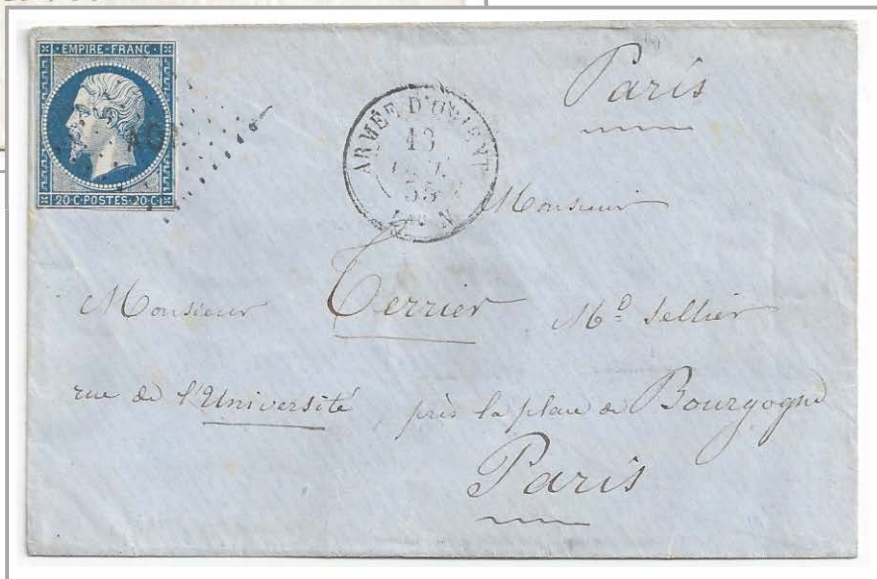 EMPIRE · FRANC ·
20 · C · POSTES · 20 · C ·
ARMÉE D'ORIENT
13
55
Paris
Monsieur
Monsieur Terrier Md Sellier
rue de l'Université, près la place de Bourgogne
Paris